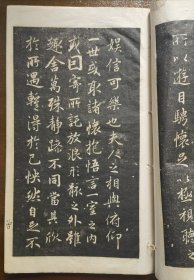 所以遊目騁懷足以極視聽
娛信可樂也夫人之相與俯仰
一世或取諸懷抱悟言一室之內
或因寄所託放浪形骸之外雖
趣舍萬殊靜躁不同當其欣
於所遇暫得於己快然自足不